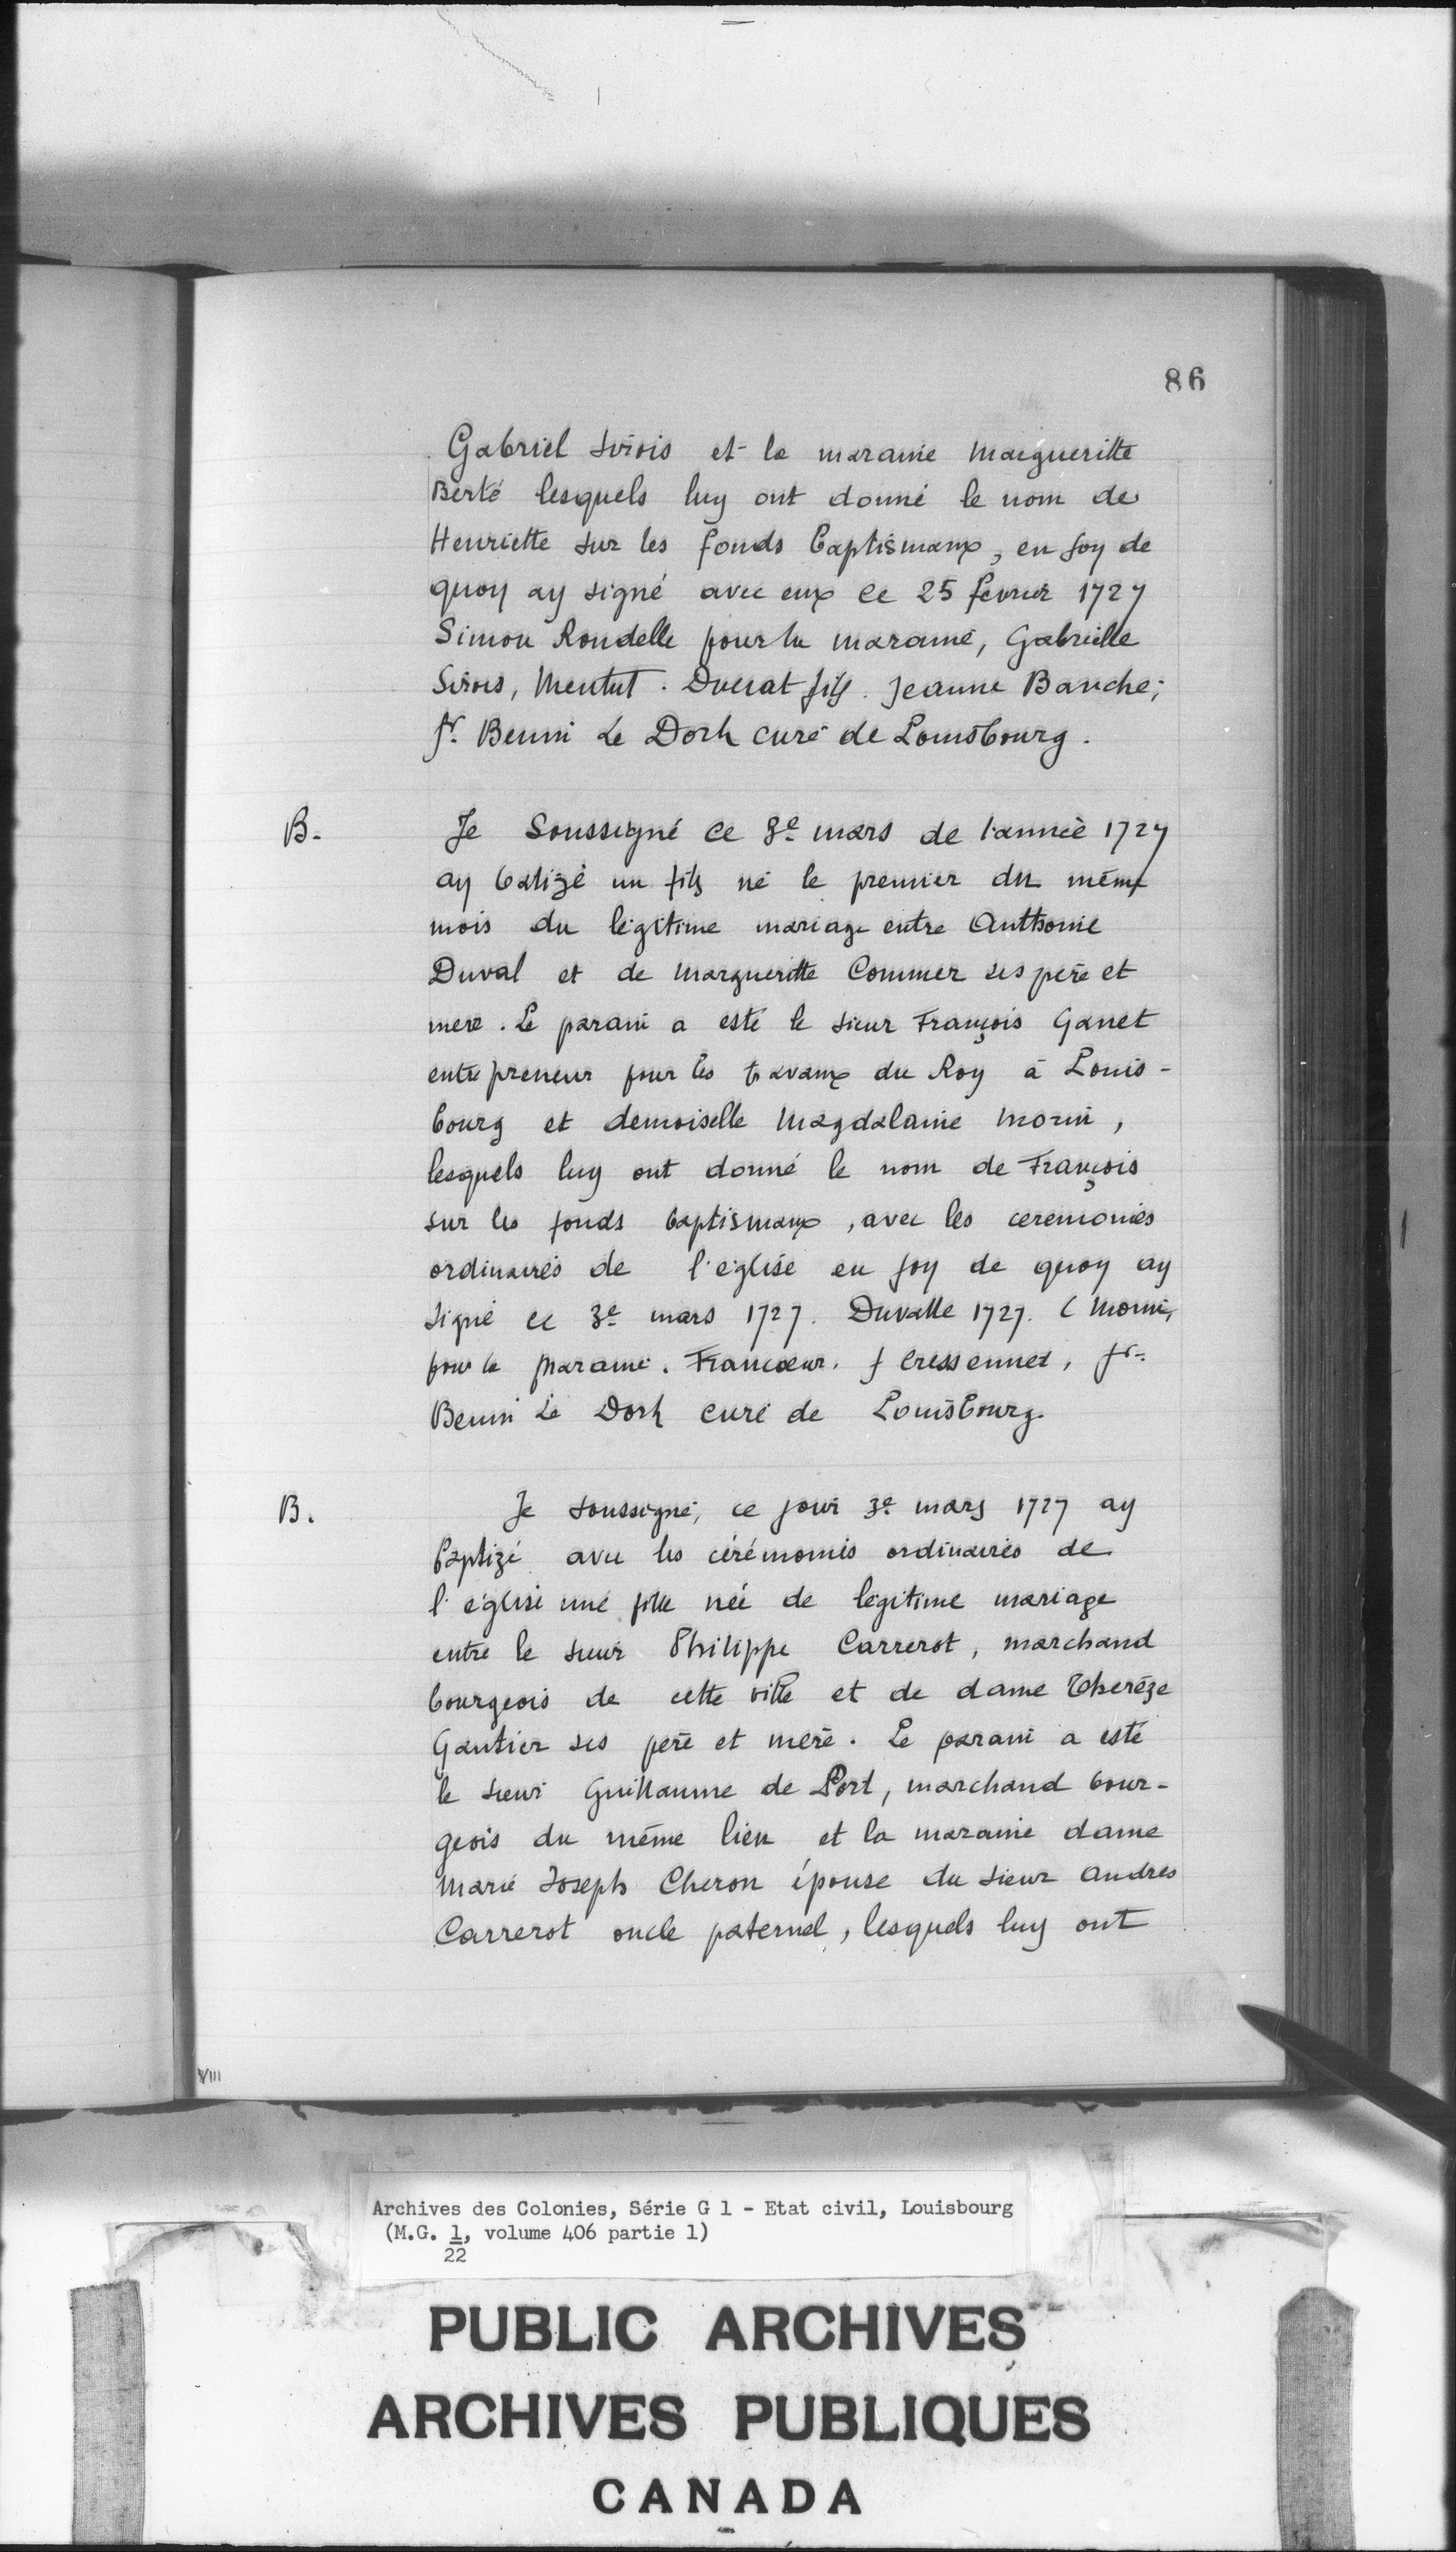 86
Gabriel Sirois et la maraine Margueritte
Berté lesquels luy ont donné le nom de
Henriette sur les fonds baptismaux, en foy de
quoy ay signé avec eux ce 25 fevrier 1727
Simon Rondelle pour la maraine, Gabrielle
Sirois, Mentut. Ducrat fils. Jeanne Bauche;
fr. Benni Le Dorh curé de Louisbourg.
B. Je Soussigné ce 3e mars de l'année 1727
ay batizé un fils né le premier du même
mois du legitime mariage entre Anthonie
Duval et de Margueritte Commer ses pere et
mere. Le parain a esté le sieur François Ganet
entrepreneur pour les travaux du Roy à Louis-
bourg et demoiselle Magdalaine Morin,
lesquels luy ont donné le nom de François
sur les fonds baptismaux, avec les ceremonies
ordinaires de l'église en foy de quoy ay
signé ce 3e mars 1727. Duvalle 1727. C Morin,
pour la maraine. Francœur. f Cressennet, fr.
Benni Le Dorh curé de Louisbourg.
B. Je soussigné, ce jour 3e mars 1727 ay
baptizé avec les cérémonies ordinaires de
l'église une fille née de légitime mariage
entre le sieur Philippe Carrerot, marchand
bourgeois de cette ville et de dame Thereze
Gautier ses pere et mere. Le parain a esté
le sieur Guillaume de Port, marchand bour-
geois du même lieu et la maraine dame
Marie Joseph Cheron épouse du sieur Andres
Carrerot oncle paternel, lesquels luy ont
VIII
Archives des Colonies, Série G 1 - Etat civil, Louisbourg
(M.G. 1, volume 406 partie 1)
22
PUBLIC ARCHIVES
ARCHIVES PUBLIQUES
CANADA